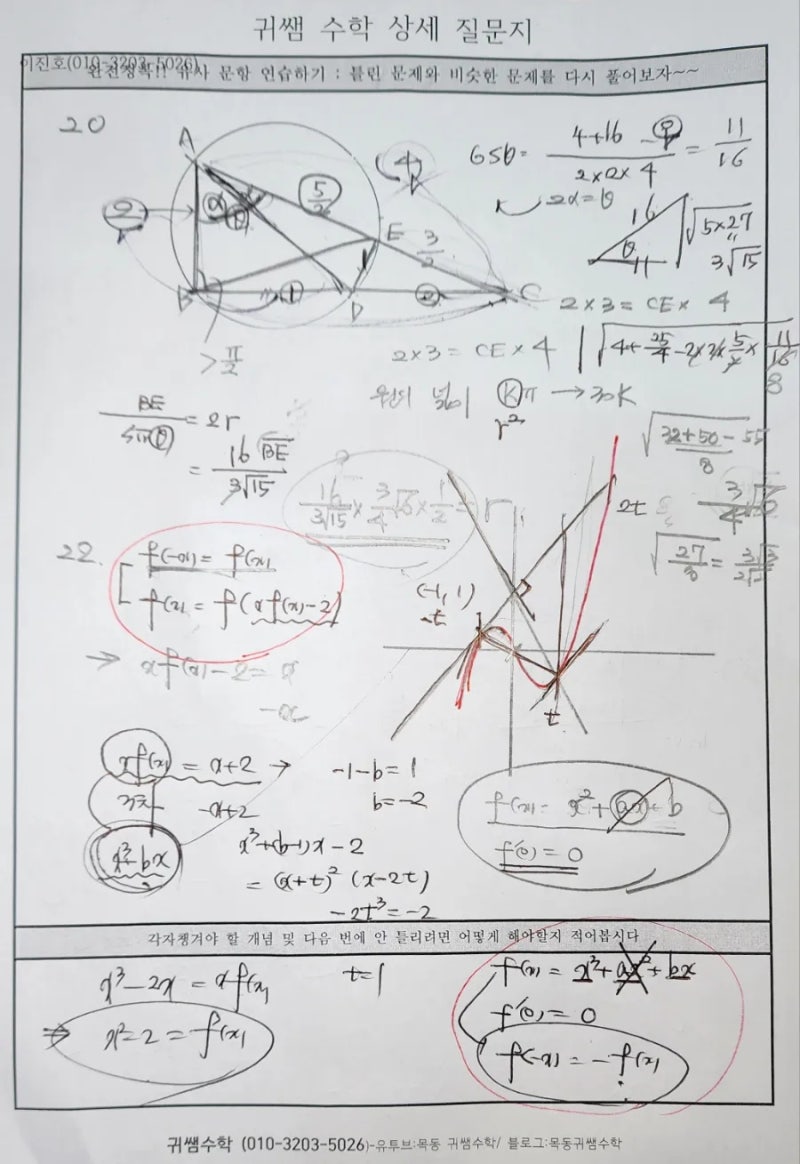 귀쌤 수학 상세 질문지
이진호(010-3203-5026)
완전정복!! 유사 문항 연습하기 : 틀린 문제와 비슷한 문제를 다시 풀어보자~~
20
A
α
θ
5/2
4
2
E
3/2
B
1
D
2
C
> π/2
cosθ = (4+16-9)/(2×2×4) = 11/16
2α=θ
16
θ
11
√5×27
"
3√15
2×3 = CE × 4
2×3 = CE × 4
√4+25/4-2×2×5/2×11/16
8
원의 넓이 kπ → 30k
r²
BE/sinθ = 2r
= 16BE/3√15
√(32+50-55)/8
16/3√15 × 3/4√6 × 1/2 = r
3/4√6
√27/8 = 3√3/2√2
22.
f(-x) = f(x)
f(x) = f(xf(x)-2)
⇒ xf(x)-2 = x
-x
(-1, 1)
-t
2t
t
xf(x) = x+2 →
-x+2
x³+bx
-1-b = 1
b = -2
x³+(b-1)x-2
= (x+t)² (x-2t)
-2t³ = -2
f(x) = x²+ax+b
f'(0) = 0
각자챙겨야 할 개념 및 다음 번에 안 틀리려면 어떻게 해야할지 적어봅시다
x³-2x = xf(x)
t=1
⇒ x²-2 = f(x)
f(x) = x³+ax²+bx
f'(0) = 0
f(-x) = -f(x)
귀쌤수학 (010-3203-5026)-유투브:목동 귀쌤수학/ 블로그:목동귀쌤수학